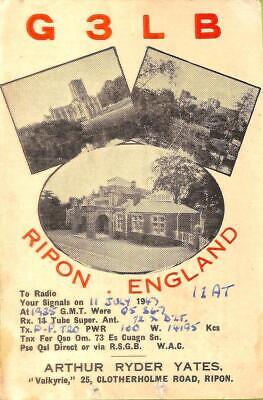 G 3 L B
RIPON . ENGLAND
To Radio I1AT
Your Signals on 11 JULY 1947
At 1935 G.M.T. Were Q5 S6/7
Rx. 14 Tube Super. Ant. 72
Tx. P-P. T20 PWR 100 W. 14195 Kcs
Tnx For Qso Om. 73 Es Cuagn Sn.
Pse Qsl Direct or via R.S.G.B. W.A.C.
ARTHUR RYDER YATES,
"Valkyrie," 25, CLOTHERHOLME ROAD, RIPON.